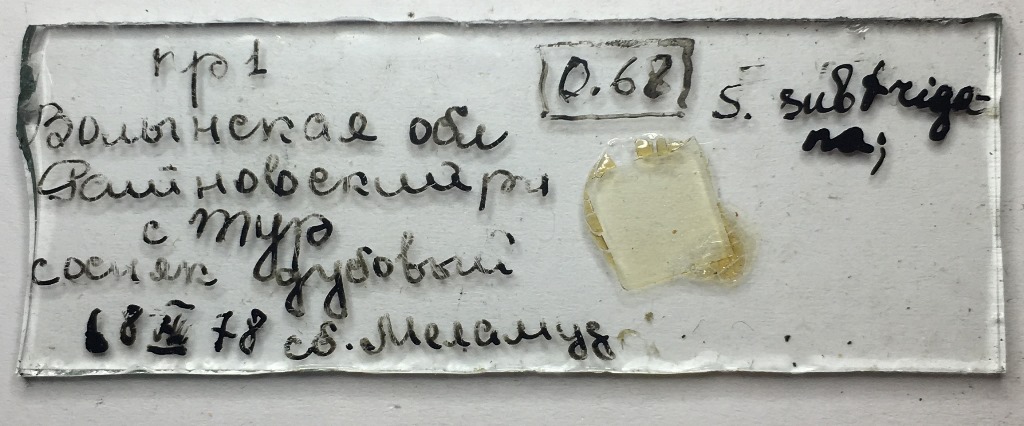 пр 1
Волынская обл
Ратновский р-н
с Тур
сосняк дубовый
18 78 сб. Меламуд
0.68
S. subtrigo-
na;